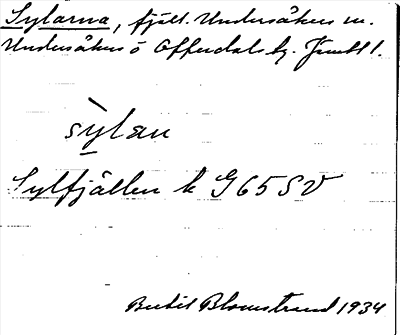 Sylarna, fjäll. Undersåkers sn.
Undersåkers o Offerdals tg. Jämtl l.
sỳlan
Sylfjällen k G65SV
Bertil Blomstrand 1934